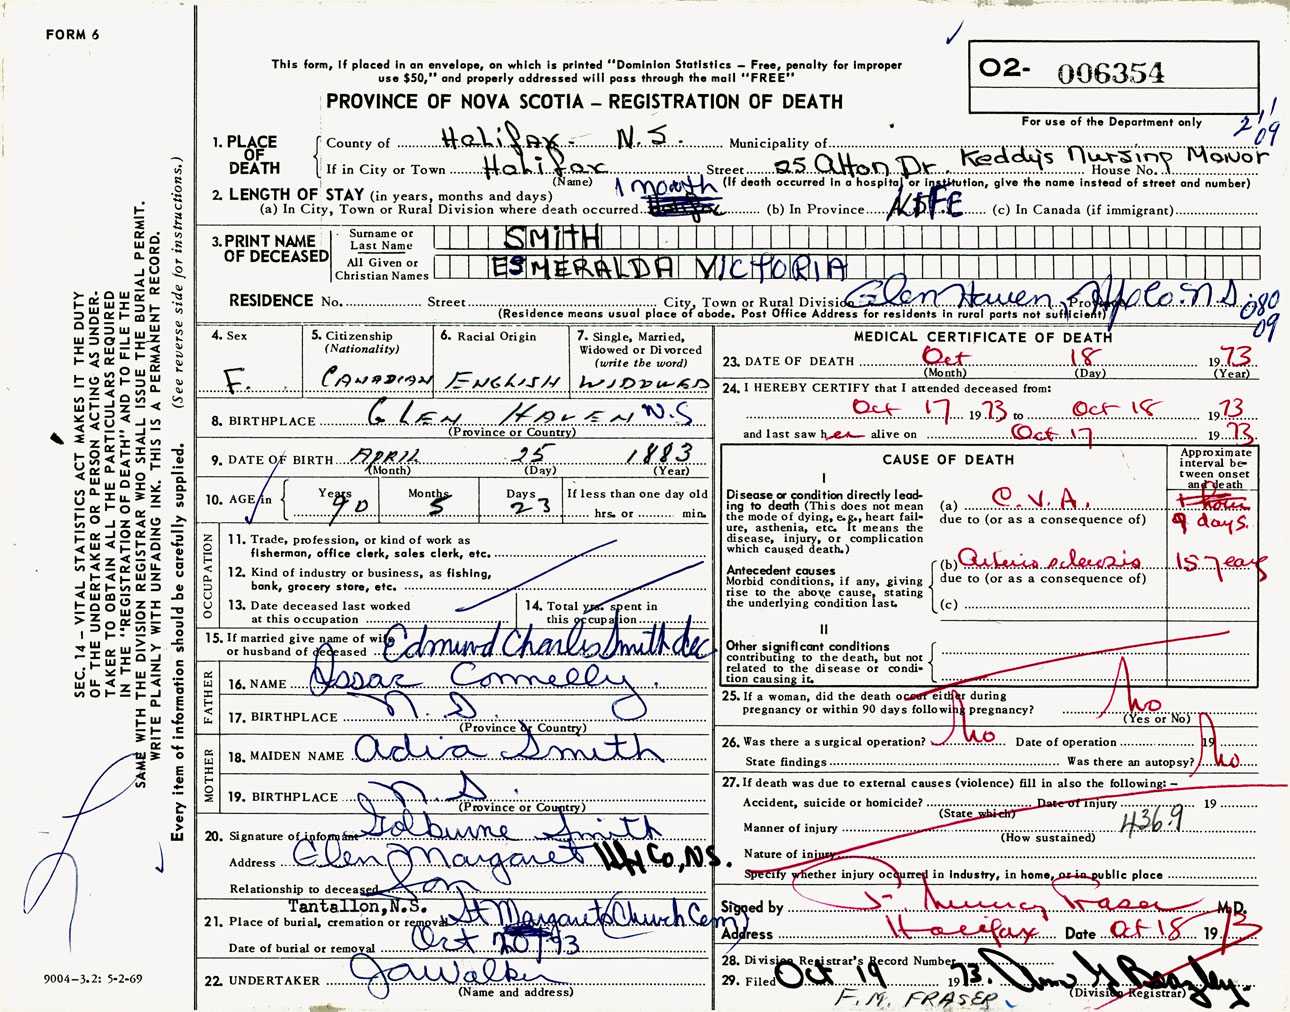 FORM 6
This form, if placed in an envelope, on which is printed "Dominion Statistics – Free, penalty for improper
use $50," and properly addressed will pass through the mail "FREE"
PROVINCE OF NOVA SCOTIA – REGISTRATION OF DEATH
O2- 006354
For use of the Department only
211
09
1. PLACE OF DEATH
County of Halifax - N.S. Municipality of
If in City or Town Halifax Street 25 Alton Dr. Keddy's Nursing Manor House No.
(Name) (If death occurred in a hospital or institution, give the name instead of street and number)
2. LENGTH OF STAY (in years, months and days) 1 month
(a) In City, Town or Rural Division where death occurred (b) In Province LIFE (c) In Canada (if immigrant)
3. PRINT NAME OF DECEASED
Surname or Last Name SMITH
All Given or Christian Names ESMERALDA VICTORIA
RESIDENCE No. Street City, Town or Rural Division Glen Haven Province Hfx Co. N.S. 080
09
(Residence means usual place of abode. Post Office Address for residents in rural parts not sufficient)
4. Sex
F.
5. Citizenship (Nationality)
CANADIAN
6. Racial Origin
ENGLISH
7. Single, Married, Widowed or Divorced (write the word)
WIDOWED
8. BIRTHPLACE GLEN HAVEN N.S
(Province or Country)
9. DATE OF BIRTH APRIL 25 1883
(Month) (Day) (Year)
10. AGE in Years 90 Months 5 Days 23 If less than one day old
hrs. or min.
OCCUPATION
11. Trade, profession, or kind of work as
fisherman, office clerk, sales clerk, etc.
12. Kind of industry or business, as fishing,
bank, grocery store, etc.
13. Date deceased last worked
at this occupation
14. Total yrs. spent in
this occupation
15. If married give name of wife
or husband of deceased Edmund Charles Smith dec
FATHER
16. NAME Issac Connelly.
17. BIRTHPLACE N.S.
(Province or Country)
MOTHER
18. MAIDEN NAME Adia Smith
19. BIRTHPLACE N.S.
(Province or Country)
20. Signature of informant Golburne Smith
Address Glen Margaret Hfx Co, N.S.
Relationship to deceased Son
Tantallon, N.S.
21. Place of burial, cremation or removal St Margarets (Church Cem)
Date of burial or removal Oct 20/73
22. UNDERTAKER JaWalker
(Name and address)
MEDICAL CERTIFICATE OF DEATH
23. DATE OF DEATH Oct 18 1973
(Month) (Day) (Year)
24. I HEREBY CERTIFY that I attended deceased from:
Oct 17 1973 to Oct 18 1973
and last saw her alive on Oct 17 1973
CAUSE OF DEATH
Approximate interval between onset and death
I
Disease or condition directly lead-
ing to death (This does not mean
the mode of dying, e.g., heart fail-
ure, asthenia, etc. It means the
disease, injury, or complication
which caused death.)
(a) C.V.A.
1 hour
9 days.
due to (or as a consequence of)
Antecedent causes
Morbid conditions, if any, giving
rise to the above cause, stating
the underlying condition last.
(b) Arteriosclerosis 15 years
due to (or as a consequence of)
(c)
II
Other significant conditions
contributing to the death, but not
related to the disease or condi-
tion causing it.
25. If a woman, did the death occur either during
pregnancy or within 90 days following pregnancy? No
(Yes or No)
26. Was there a surgical operation? No Date of operation 19
State findings Was there an autopsy? No
27. If death was due to external causes (violence) fill in also the following: –
Accident, suicide or homicide? Date of injury 19
(State which)
Manner of injury 436.9
(How sustained)
Nature of injury
Specify whether injury occurred in industry, in home, or in public place
Signed by F. Murray Fraser M.D.
Address Halifax Date Oct 18 1973
28. Division Registrar's Record Number
29. Filed Oct 19 1973.
(Division Registrar)
F. M. FRASER.
SEC. 14 – VITAL STATISTICS ACT MAKES IT THE DUTY
OF THE UNDERTAKER OR PERSON ACTING AS UNDER-
TAKER TO OBTAIN ALL THE PARTICULARS REQUIRED
IN THE "REGISTRATION OF DEATH" AND TO FILE THE
SAME WITH THE DIVISION REGISTRAR WHO SHALL ISSUE THE BURIAL PERMIT.
WRITE PLAINLY WITH UNFADING INK. THIS IS A PERMANENT RECORD.
Every item of information should be carefully supplied. (See reverse side for instructions.)
9004–3.2: 5-2-69